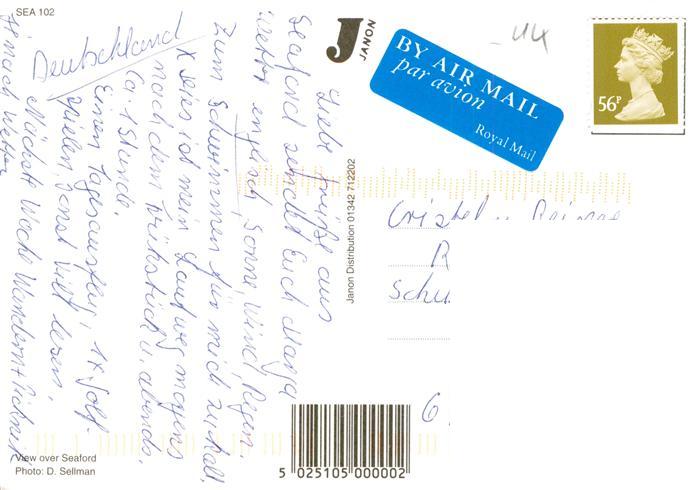 SEA 102
Deutschland
Liebe Grüße aus
Seaford sendet Euch Marga
Wetter englisch, Sonne, Wind, Regen.
Zum Schwimmen für mich zu kalt.
x dies ist mein Laufweg morgens
nach dem Frühstück u. abends.
Ca. 1 Stunde.
Einen Tagesausflug, 1x Golf
spielen, sonst viel lesen.
Nächste Woche Wandern + Picknick
je nach Wetter
View over Seaford
Photo: D. Sellman
J
JANON
Janon Distribution 01342 712202
BY AIR MAIL
par avion
Royal Mail
44
56P
Cristel u.
R
Schu
6
5 025105 000002